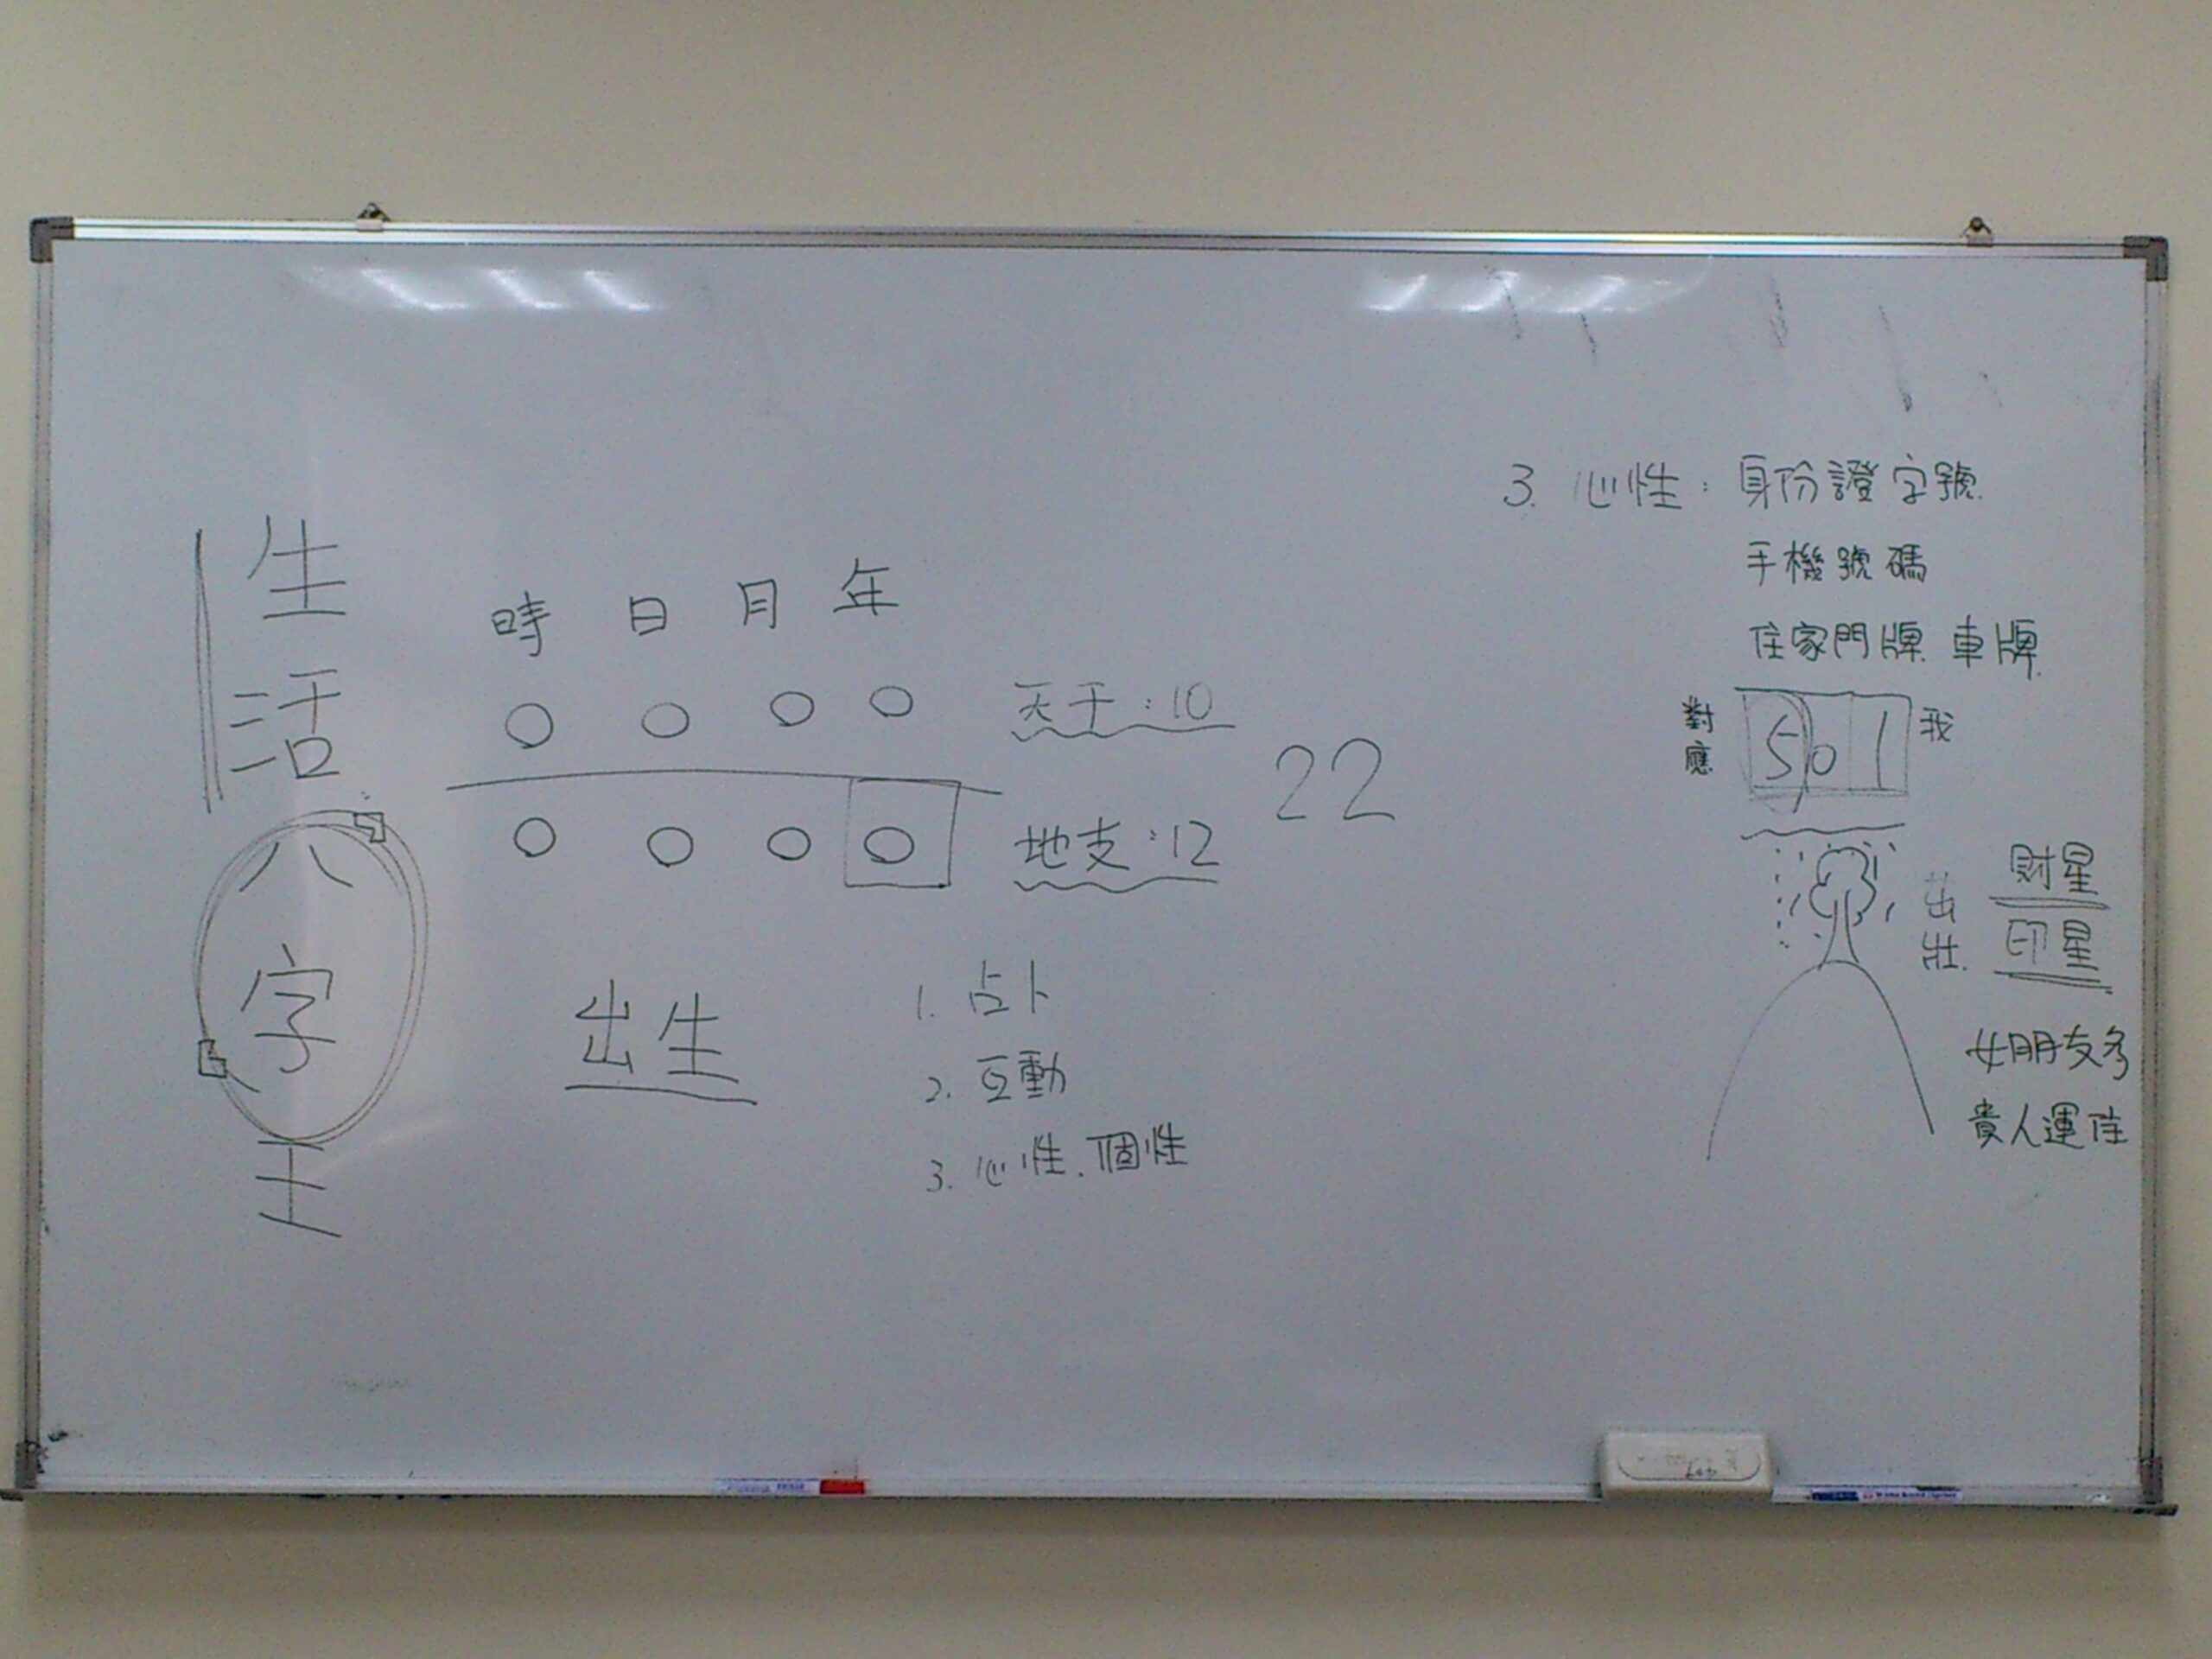 生活八字王
時 日 月 年
○ ○ ○ ○ 天干:10
○ ○ ○ ○ 地支:12
22
出生
1. 占卜
2. 互動
3. 心性、個性
3. 心性:身份證字號
手機號碼
住家門牌 車牌
對應 501 我
財星
印星
女朋友多
貴人運佳